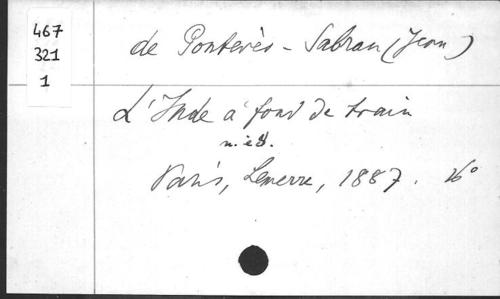 467
321
1
de Pontevès-Sabran (Jean)
L'Inde à fond de train
n. éd.
Paris, Lemerre, 1887. 16°